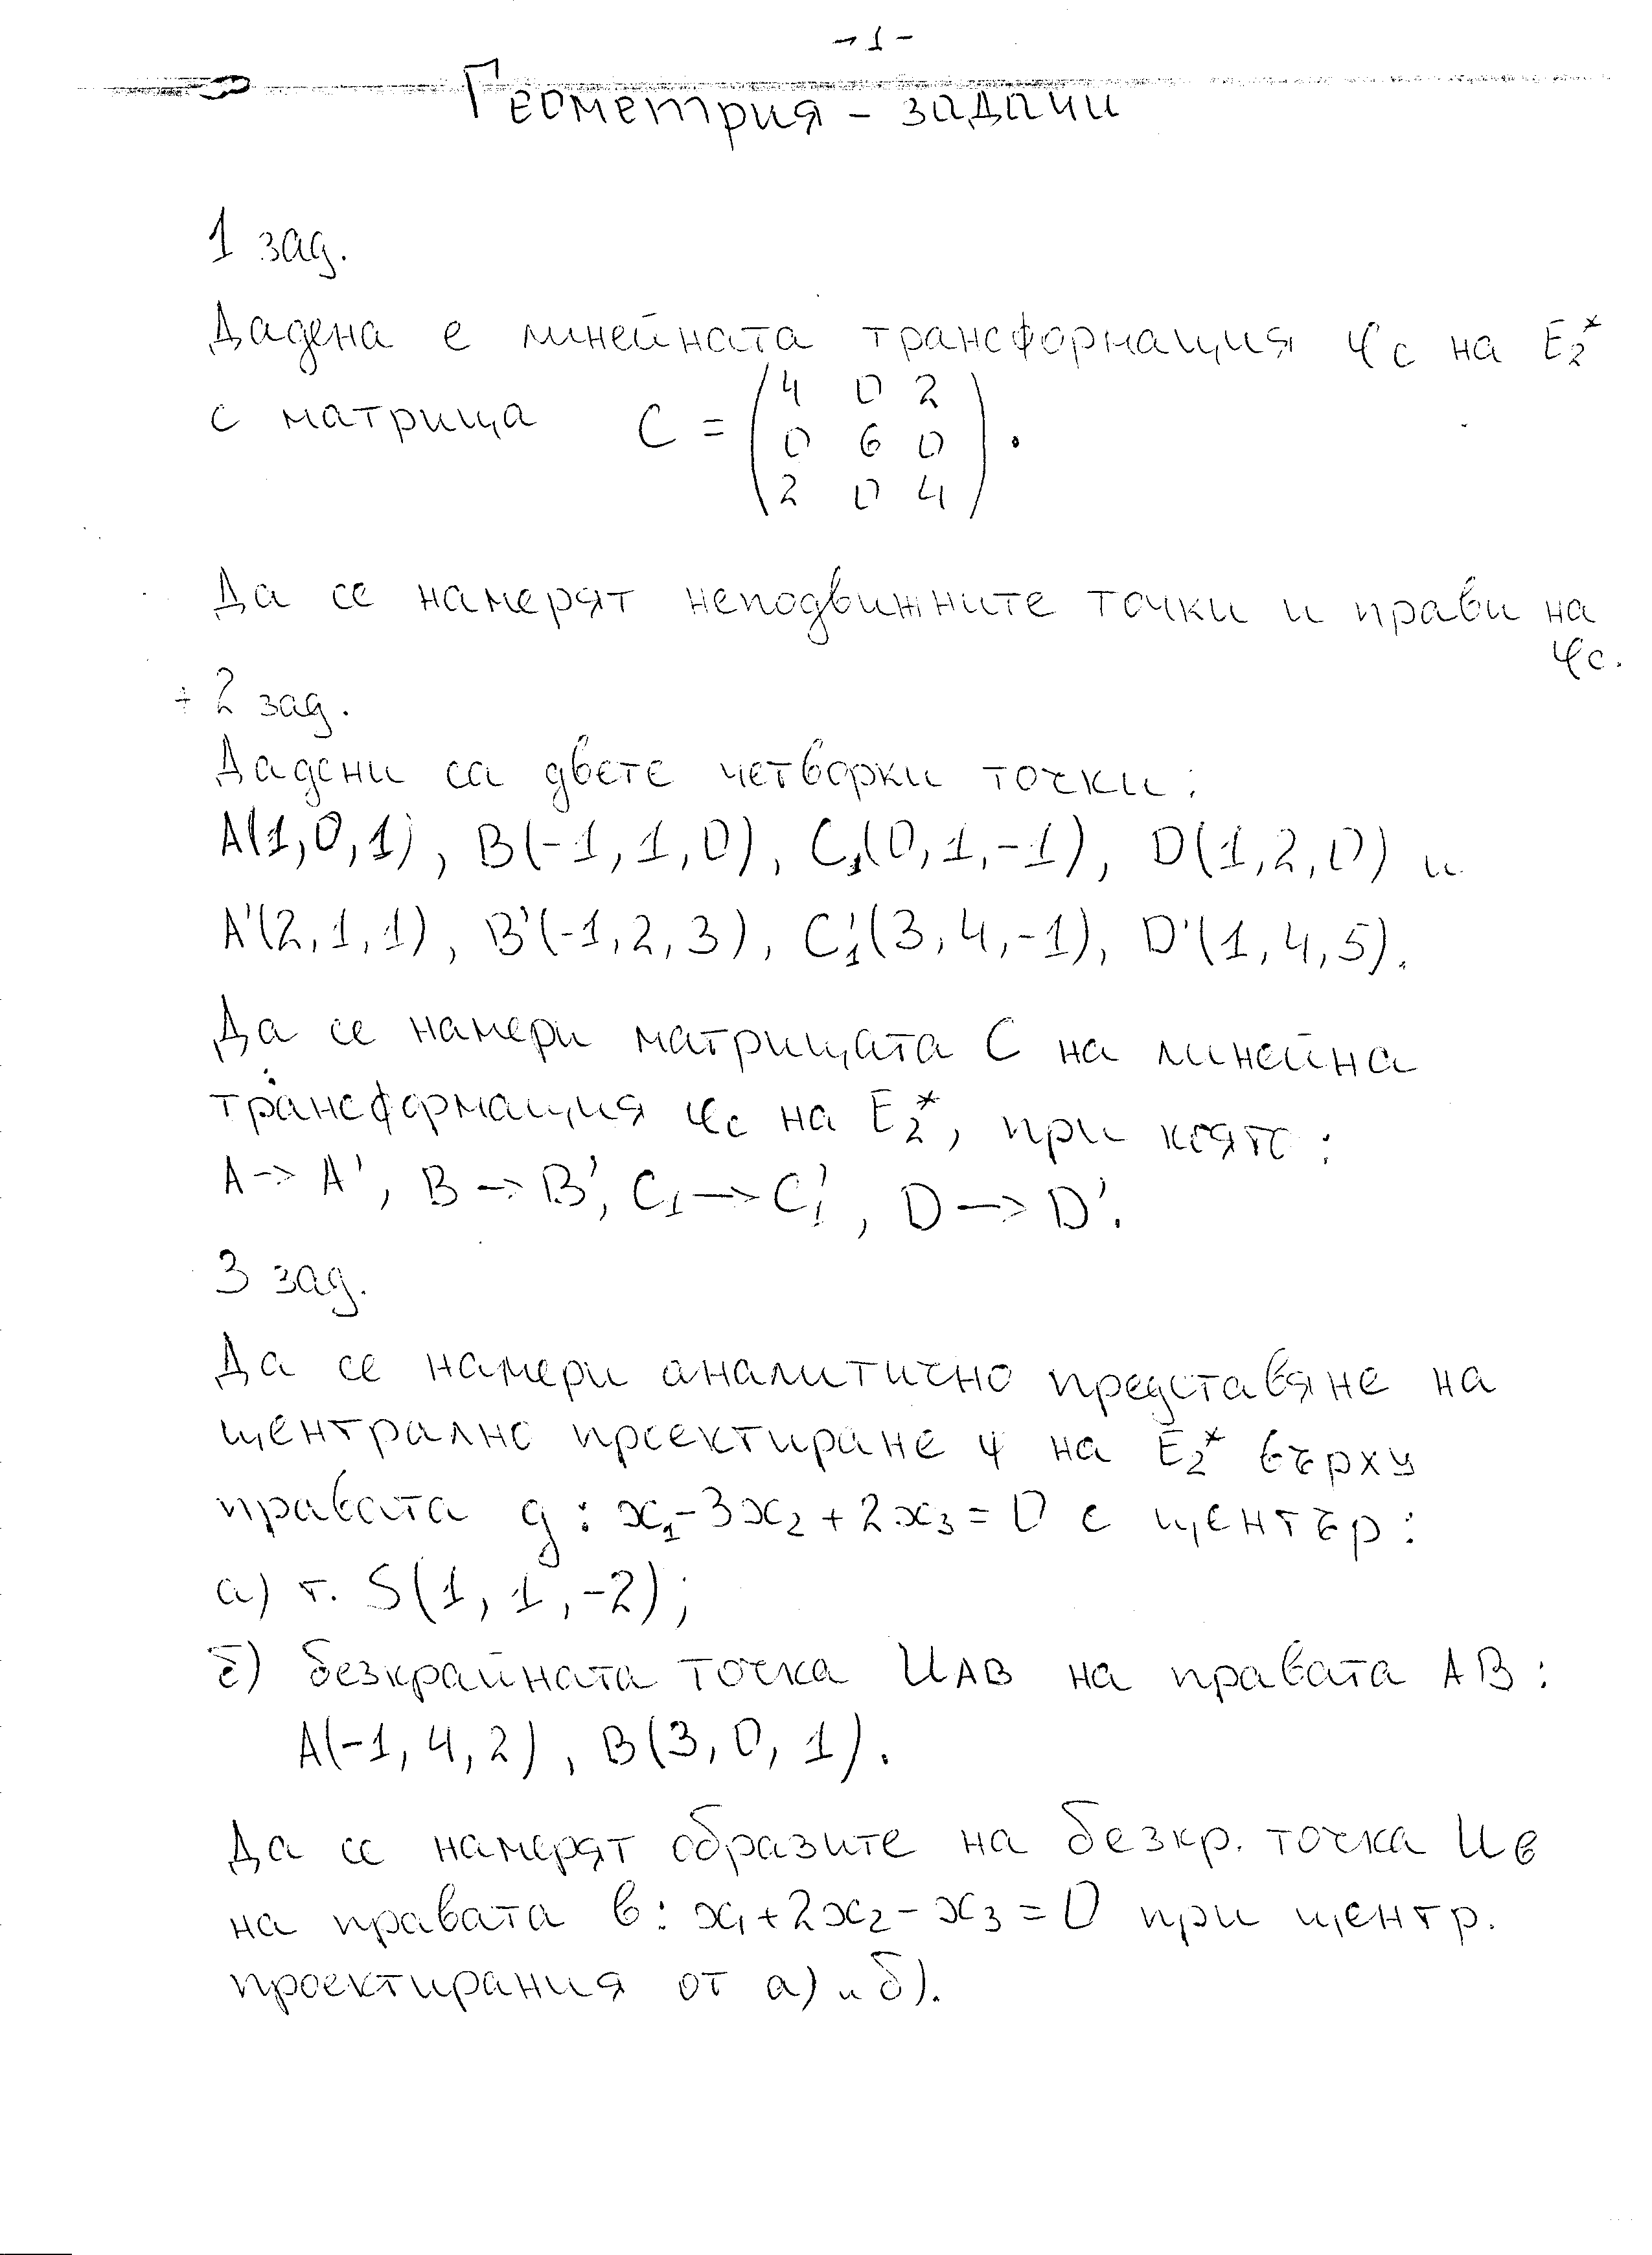 - 1 -
Геометрия - задачи
1 зад.
Дадена е линейната трансформация φc на E₂*
с матрица C = (4 0 2
0 6 0
2 0 4).
Да се намерят неподвижните точки и прави на
φc.
+ 2 зад.
Дадени са двете четворки точки:
A(1,0,1), B(-1,1,0), C₁(0,1,-1), D(1,2,0) и
A'(2,1,1), B'(-1,2,3), C₁'(3,4,-1), D'(1,4,5).
Да се намери матрицата C на линейна
трансформация φc на E₂*, при която:
A -> A', B -> B', C₁ -> C₁', D -> D'.
3 зад.
Да се намери аналитично представяне на
централно проектиране φ на E₂* върху
правата g: x₁-3x₂+2x₃=0 с център:
а) т. S(1, 1, -2);
б) безкрайната точка U_AB на правата AB:
A(-1, 4, 2), B(3, 0, 1).
Да се намерят образите на безкр. точка U_b
на правата b: x₁+2x₂-x₃=0 при центр.
проектирания от а) и б).